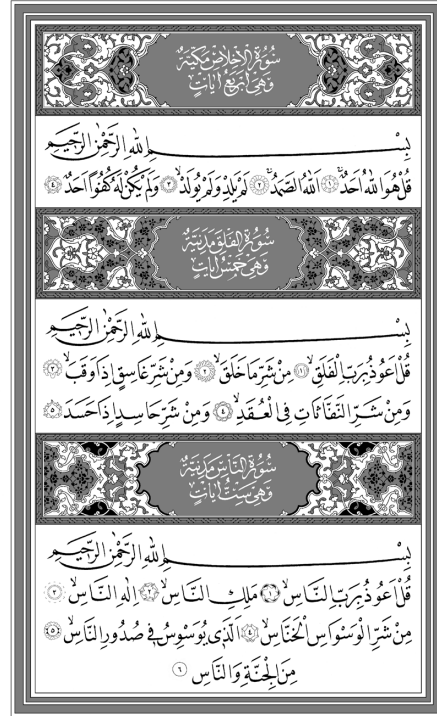 سُورَةُ الْاِخْلَاصِ مَكِّيَّةٌ
وَهِىَ اَرْبَعُ اٰيَاتٍ
بِسْمِ اللّٰهِ الرَّحْمٰنِ الرَّحٖيمِ
قُلْ هُوَ اللّٰهُ اَحَدٌۚ ﴿١﴾ اَللّٰهُ الصَّمَدُۚ ﴿٢﴾ لَمْ يَلِدْ وَلَمْ يُولَدْۙ ﴿٣﴾ وَلَمْ يَكُنْ لَهُ كُفُوًا اَحَدٌ ﴿٤﴾
سُورَةُ الْفَلَقِ مَدَنِيَّةٌ
وَهِىَ خَمْسُ اٰيَاتٍ
بِسْمِ اللّٰهِ الرَّحْمٰنِ الرَّحٖيمِ
قُلْ اَعُوذُ بِرَبِّ الْفَلَقِۙ ﴿١﴾ مِنْ شَرِّ مَا خَلَقَۙ ﴿٢﴾ وَمِنْ شَرِّ غَاسِقٍ اِذَا وَقَبَۙ ﴿٣﴾
وَمِنْ شَرِّ النَّفَّاثَاتِ فِى الْعُقَدِۙ ﴿٤﴾ وَمِنْ شَرِّ حَاسِدٍ اِذَا حَسَدَ ﴿٥﴾
سُورَةُ النَّاسِ مَدَنِيَّةٌ
وَهِىَ سِتُّ اٰيَاتٍ
بِسْمِ اللّٰهِ الرَّحْمٰنِ الرَّحٖيمِ
قُلْ اَعُوذُ بِرَبِّ النَّاسِۙ ﴿١﴾ مَلِكِ النَّاسِۙ ﴿٢﴾ اِلٰهِ النَّاسِۙ ﴿٣﴾
مِنْ شَرِّ الْوَسْوَاسِ الْخَنَّاسِۙ ﴿٤﴾ اَلَّذٖى يُوَسْوِسُ فٖى صُدُورِ النَّاسِۙ ﴿٥﴾
مِنَ الْجِنَّةِ وَالنَّاسِ ﴿٦﴾